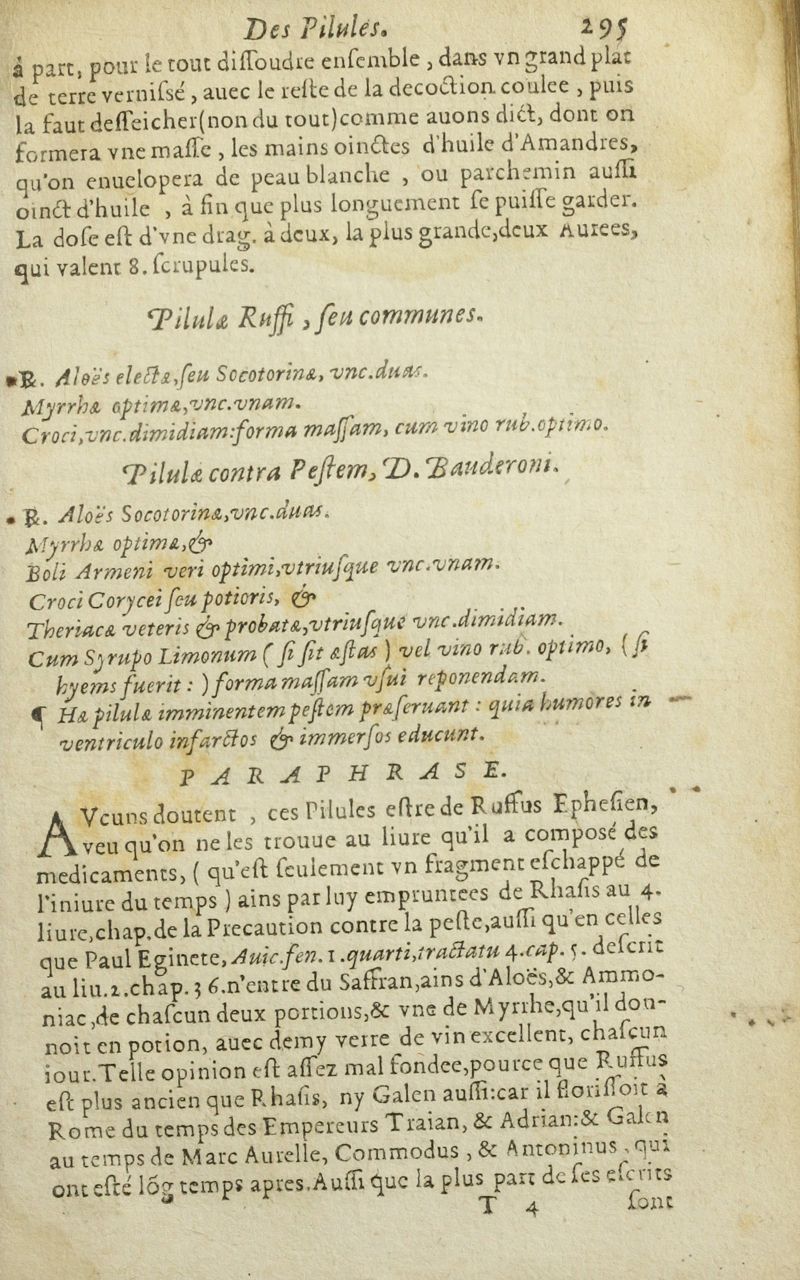 Des Pilules. 295
à part, pour le tout diſſoudre enſemble, dans vn grand plat
de terre verniſsé, auec le reſte de la decoction coulee, puis
la faut deſſeicher (non du tout) comme auons dict, dont on
formera vne maſſe, les mains oinctes d'huile d'Amandres,
qu'on enuelopera de peau blanche, ou parchemin auſſi
oinct d'huile, à fin que plus longuement ſe puiſſe garder.
La doſe eſt d'vne drag. à deux, la plus grande, deux Aurees,
qui valent 8. ſcrupules.
Pilulæ Ruffi, ſeu communes.
℞. Aloës electæ, ſeu Socotorinæ, vnc. duas.
Myrrhæ optimæ, vnc. vnam.
Croci, vnc. dimidiam: forma maſſam, cum vino rub. optimo.
Pilulæ contra Peſtem, D. Bauderoni.
℞. Aloës Socotorinæ, vnc. duas.
Myrrhæ optimæ, &
Boli Armeni veri optimi, vtriuſque vnc. vnam.
Croci Corycei ſeu potioris, &
Theriacæ veteris & probatæ, vtriuſque vnc. dimidiam.
Cum Syrupo Limonum ( ſi ſit æſtas ) vel vino rub. optimo, ( ſi
hyems fuerit : ) forma maſſam vſui reponendam.
¶ Hæ pilulæ imminentem peſtem præſeruant : quia humores in
ventriculo infarctos & immerſos educunt.
PARAPHRASE.
AVcuns doutent, ces Pilules eſtre de Ruffus Epheſien,
veu qu'on ne les trouue au liure qu'il a composé des
medicaments, ( qu'eſt ſeulement vn fragment eſchappé de
l'iniure du temps ) ains par luy empruntees de Rhaſis au 4.
liure, chap. de la Precaution contre la peſte, auſſi qu'en celles
que Paul Eginete, Auic. fen. 1. quarti, tractatu 4. cap. 5. deſcrit
au liu. 2. chap. 36. n'entre du Saffran, ains d'Aloës, & Ammo-
niac, de chaſcun deux portions, & vne de Myrrhe, qu'il don-
noit en potion, auec demy verre de vin excellent, chaſcun
iour. Telle opinion eſt aſſez mal fondee, pource que Ruffus
eſt plus ancien que Rhaſis, ny Galen auſſi: car il floriſſoit à
Rome du temps des Empereurs Traian, & Adrian: & Galen
au temps de Marc Aurelle, Commodus, & Antoninus, qui
ont eſté lõg temps apres. Auſſi que la plus part de ſes eſcrits
T 4 ſont